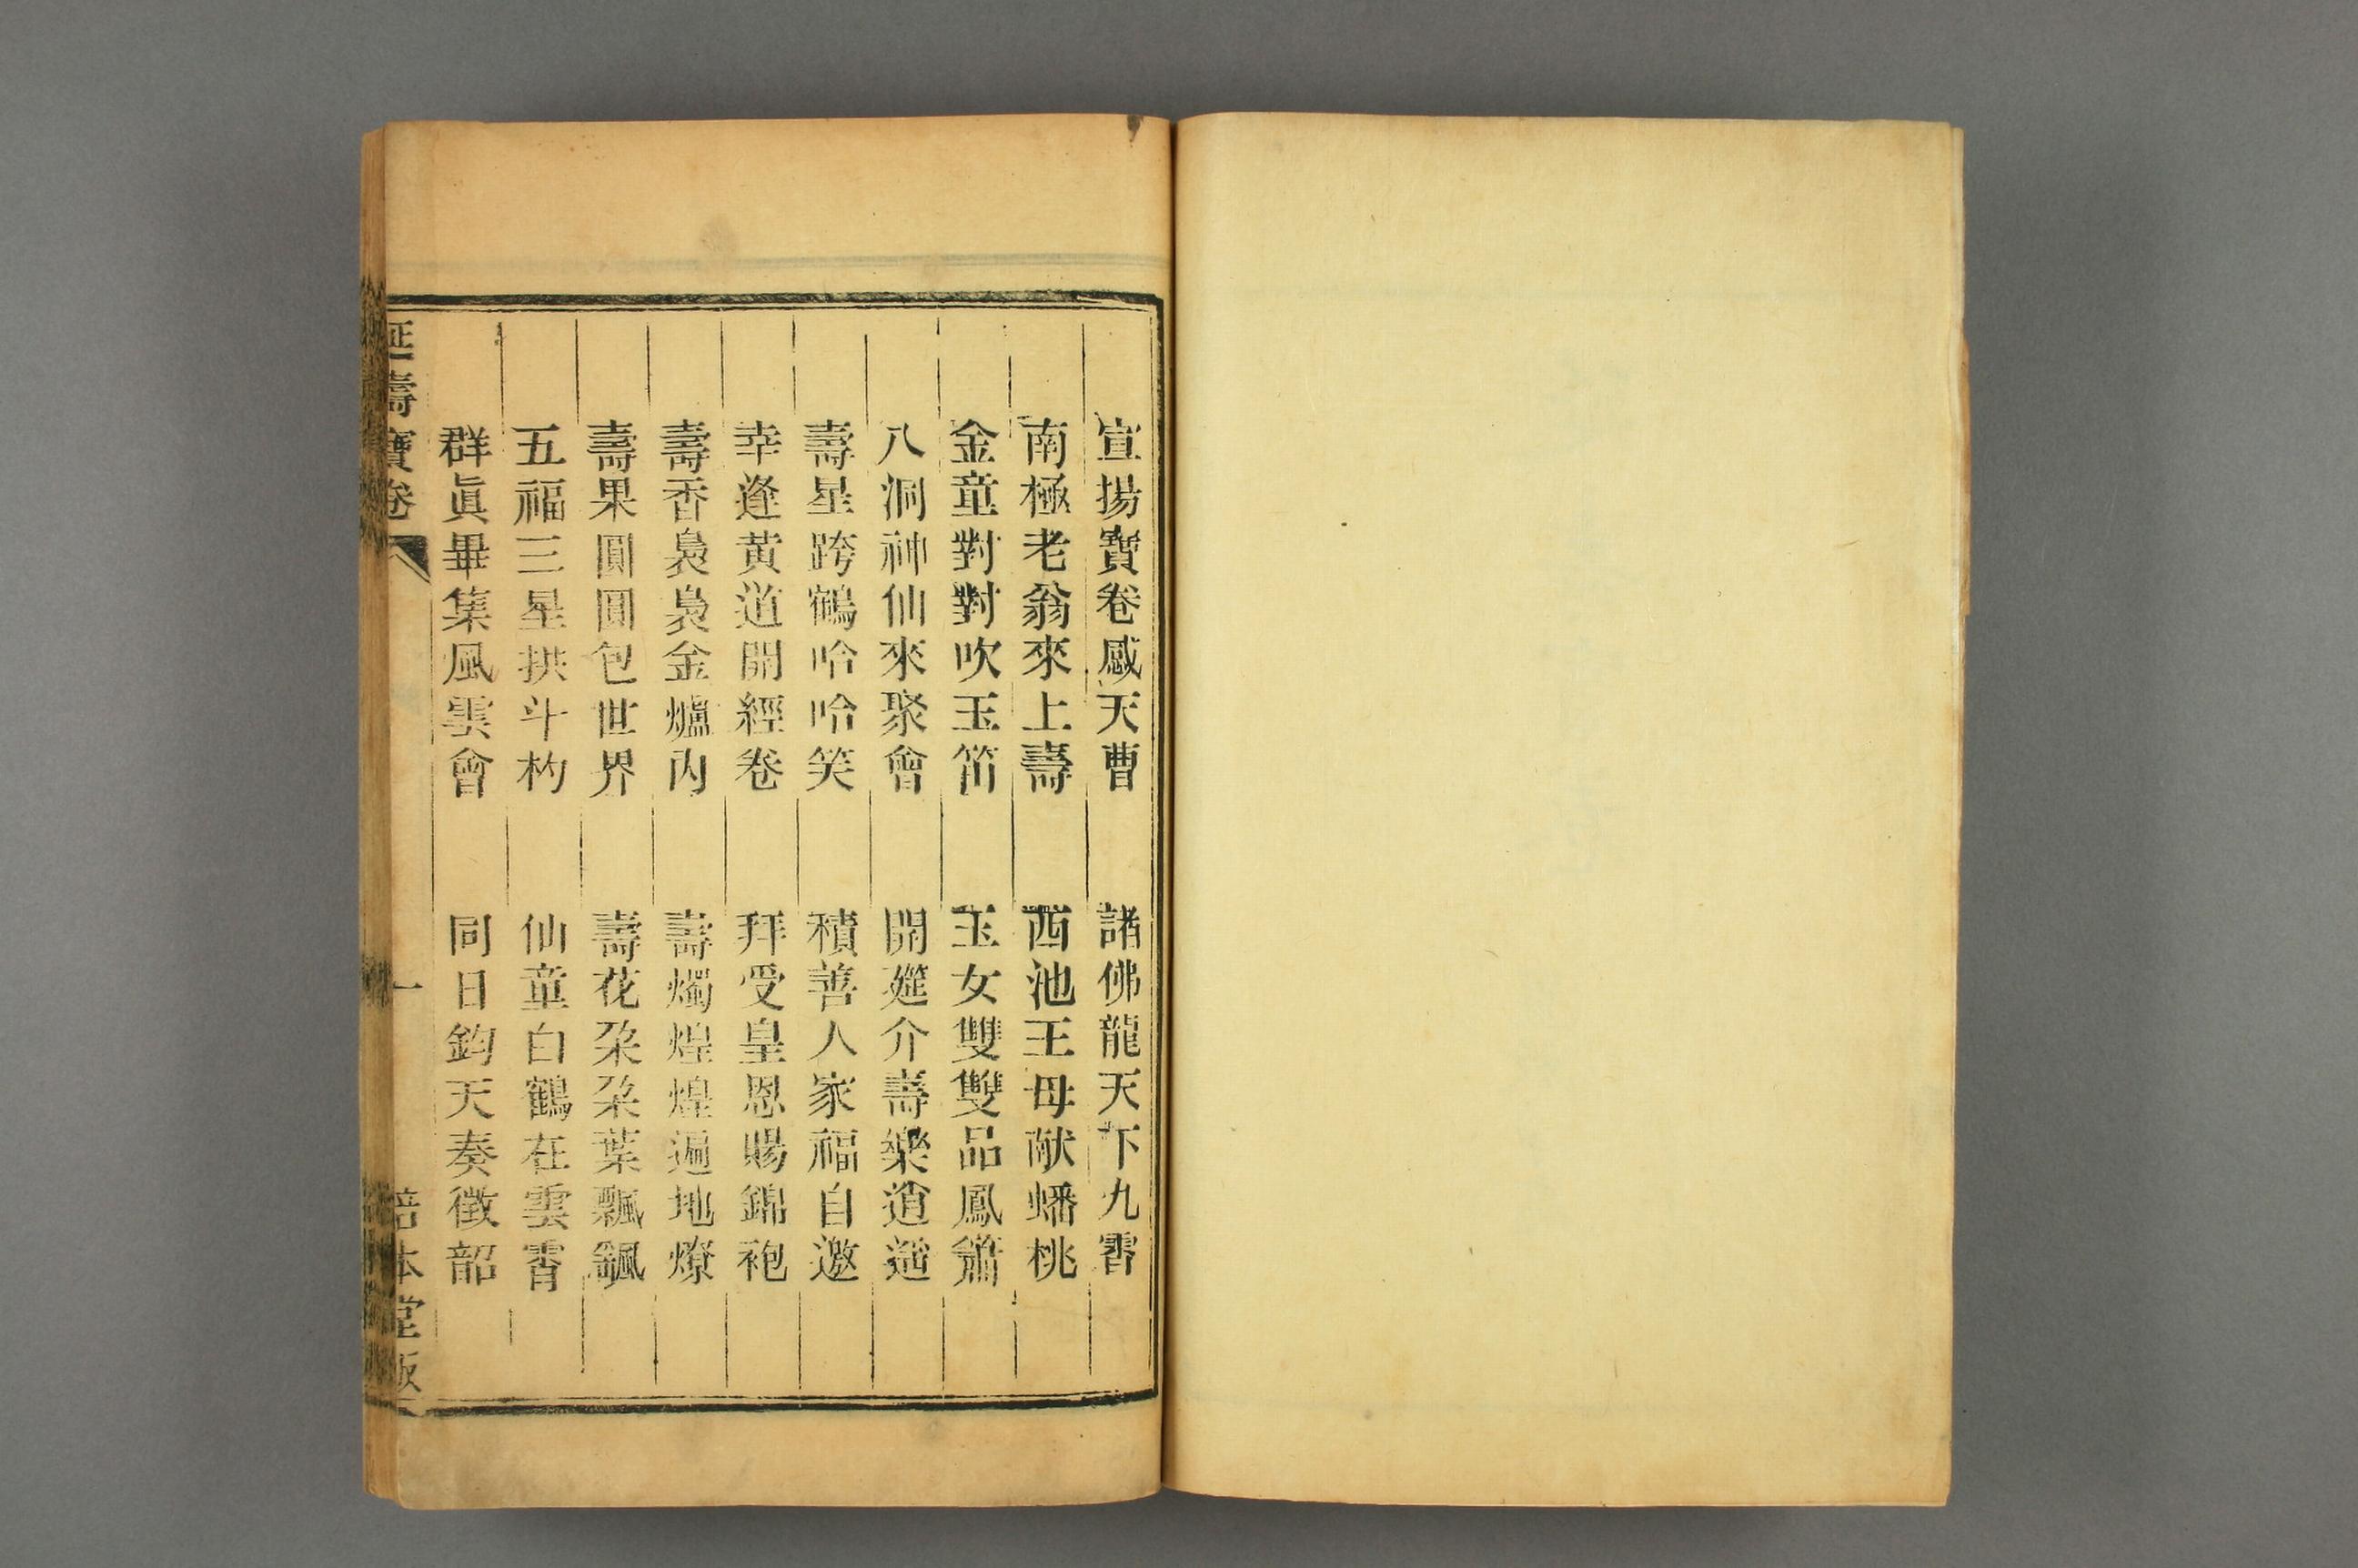 宣揚寶卷感天曹　諸佛龍天下九霄
南極老翁來上壽　西池王母献蟠桃
金童對對吹玉笛　玉女雙雙品鳳簫
八洞神仙來聚會　開筵介壽樂逍遥
壽星跨鶴哈哈笑　積善人家福自邀
幸逢黄道開經卷　拜受皇恩賜錦袍
壽香裊裊金爐内　壽燭煌煌遍地燎
壽果圓圓包世界　壽花朶朶葉飄飖
五福三星拱斗杓　仙童白鶴在雲霄
群眞畢集風雲會　同日鈞天奏徵韶
延壽寶卷　一　培本堂版